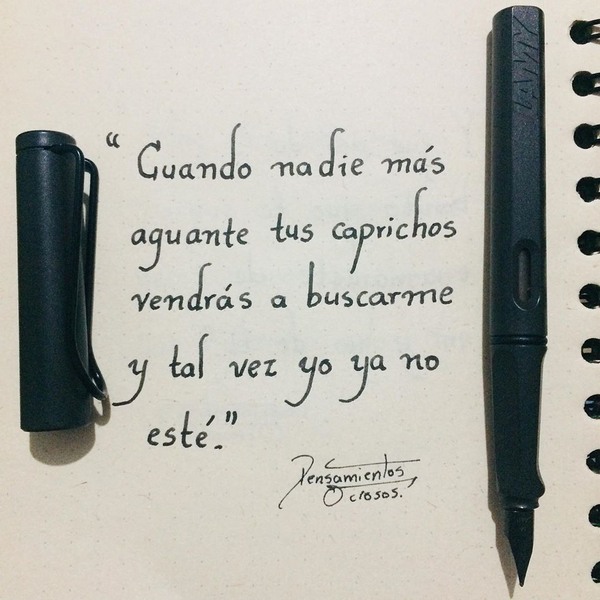 “ Cuando nadie más
aguante tus caprichos
vendrás a buscarme
y tal vez yo ya no
esté.”
Pensamientos
Ociosos.
LAMY